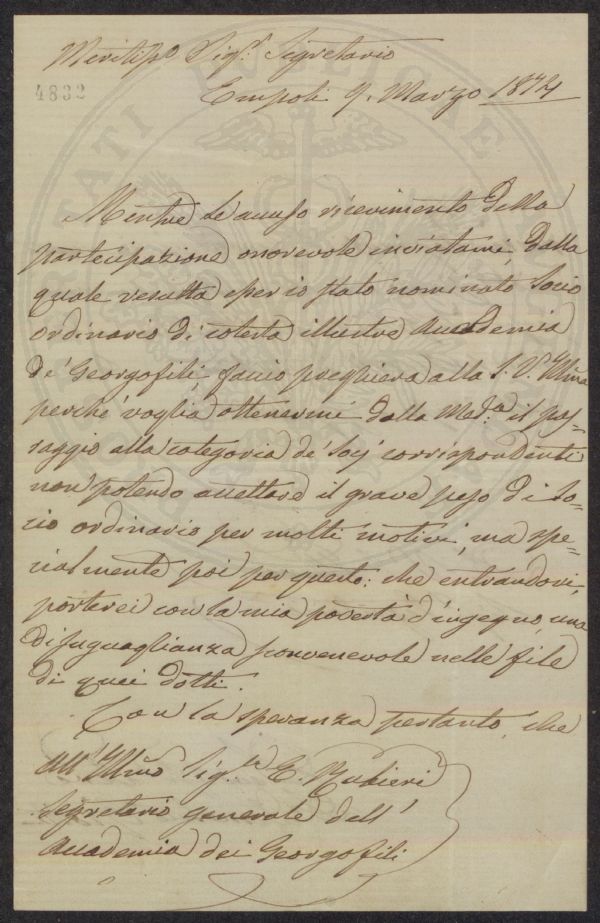 Meritis̃o Sigr. Segretario
4832
Empoli 9. Marzo 1874
Mentre Le accuso ricevimento della
partecipazione onorevole inviatami, dalla
quale resulta esser io stato nominato Socio
ordinario di cotesta illustre Accademia
de' Georgofili, faccio preghiera alla S. V. Illm̃a
perché voglia ottenermi dalla Med.a il pas-
saggio alla categoria de' Socj corrispondenti
non potendo accettare il grave peso di So-
cio ordinario per molti motivi, ma spe-
cialmente poi per questo: che entrandovi,
porterei con la mia povertà d'ingegno, una
disuguaglianza sconvenevole nelle file
di quei dotti.
Con la speranza pertanto, che
All' Illm̃o Sig.re E. Rubieri
Segretario generale dell'
Accademia dei Georgofili